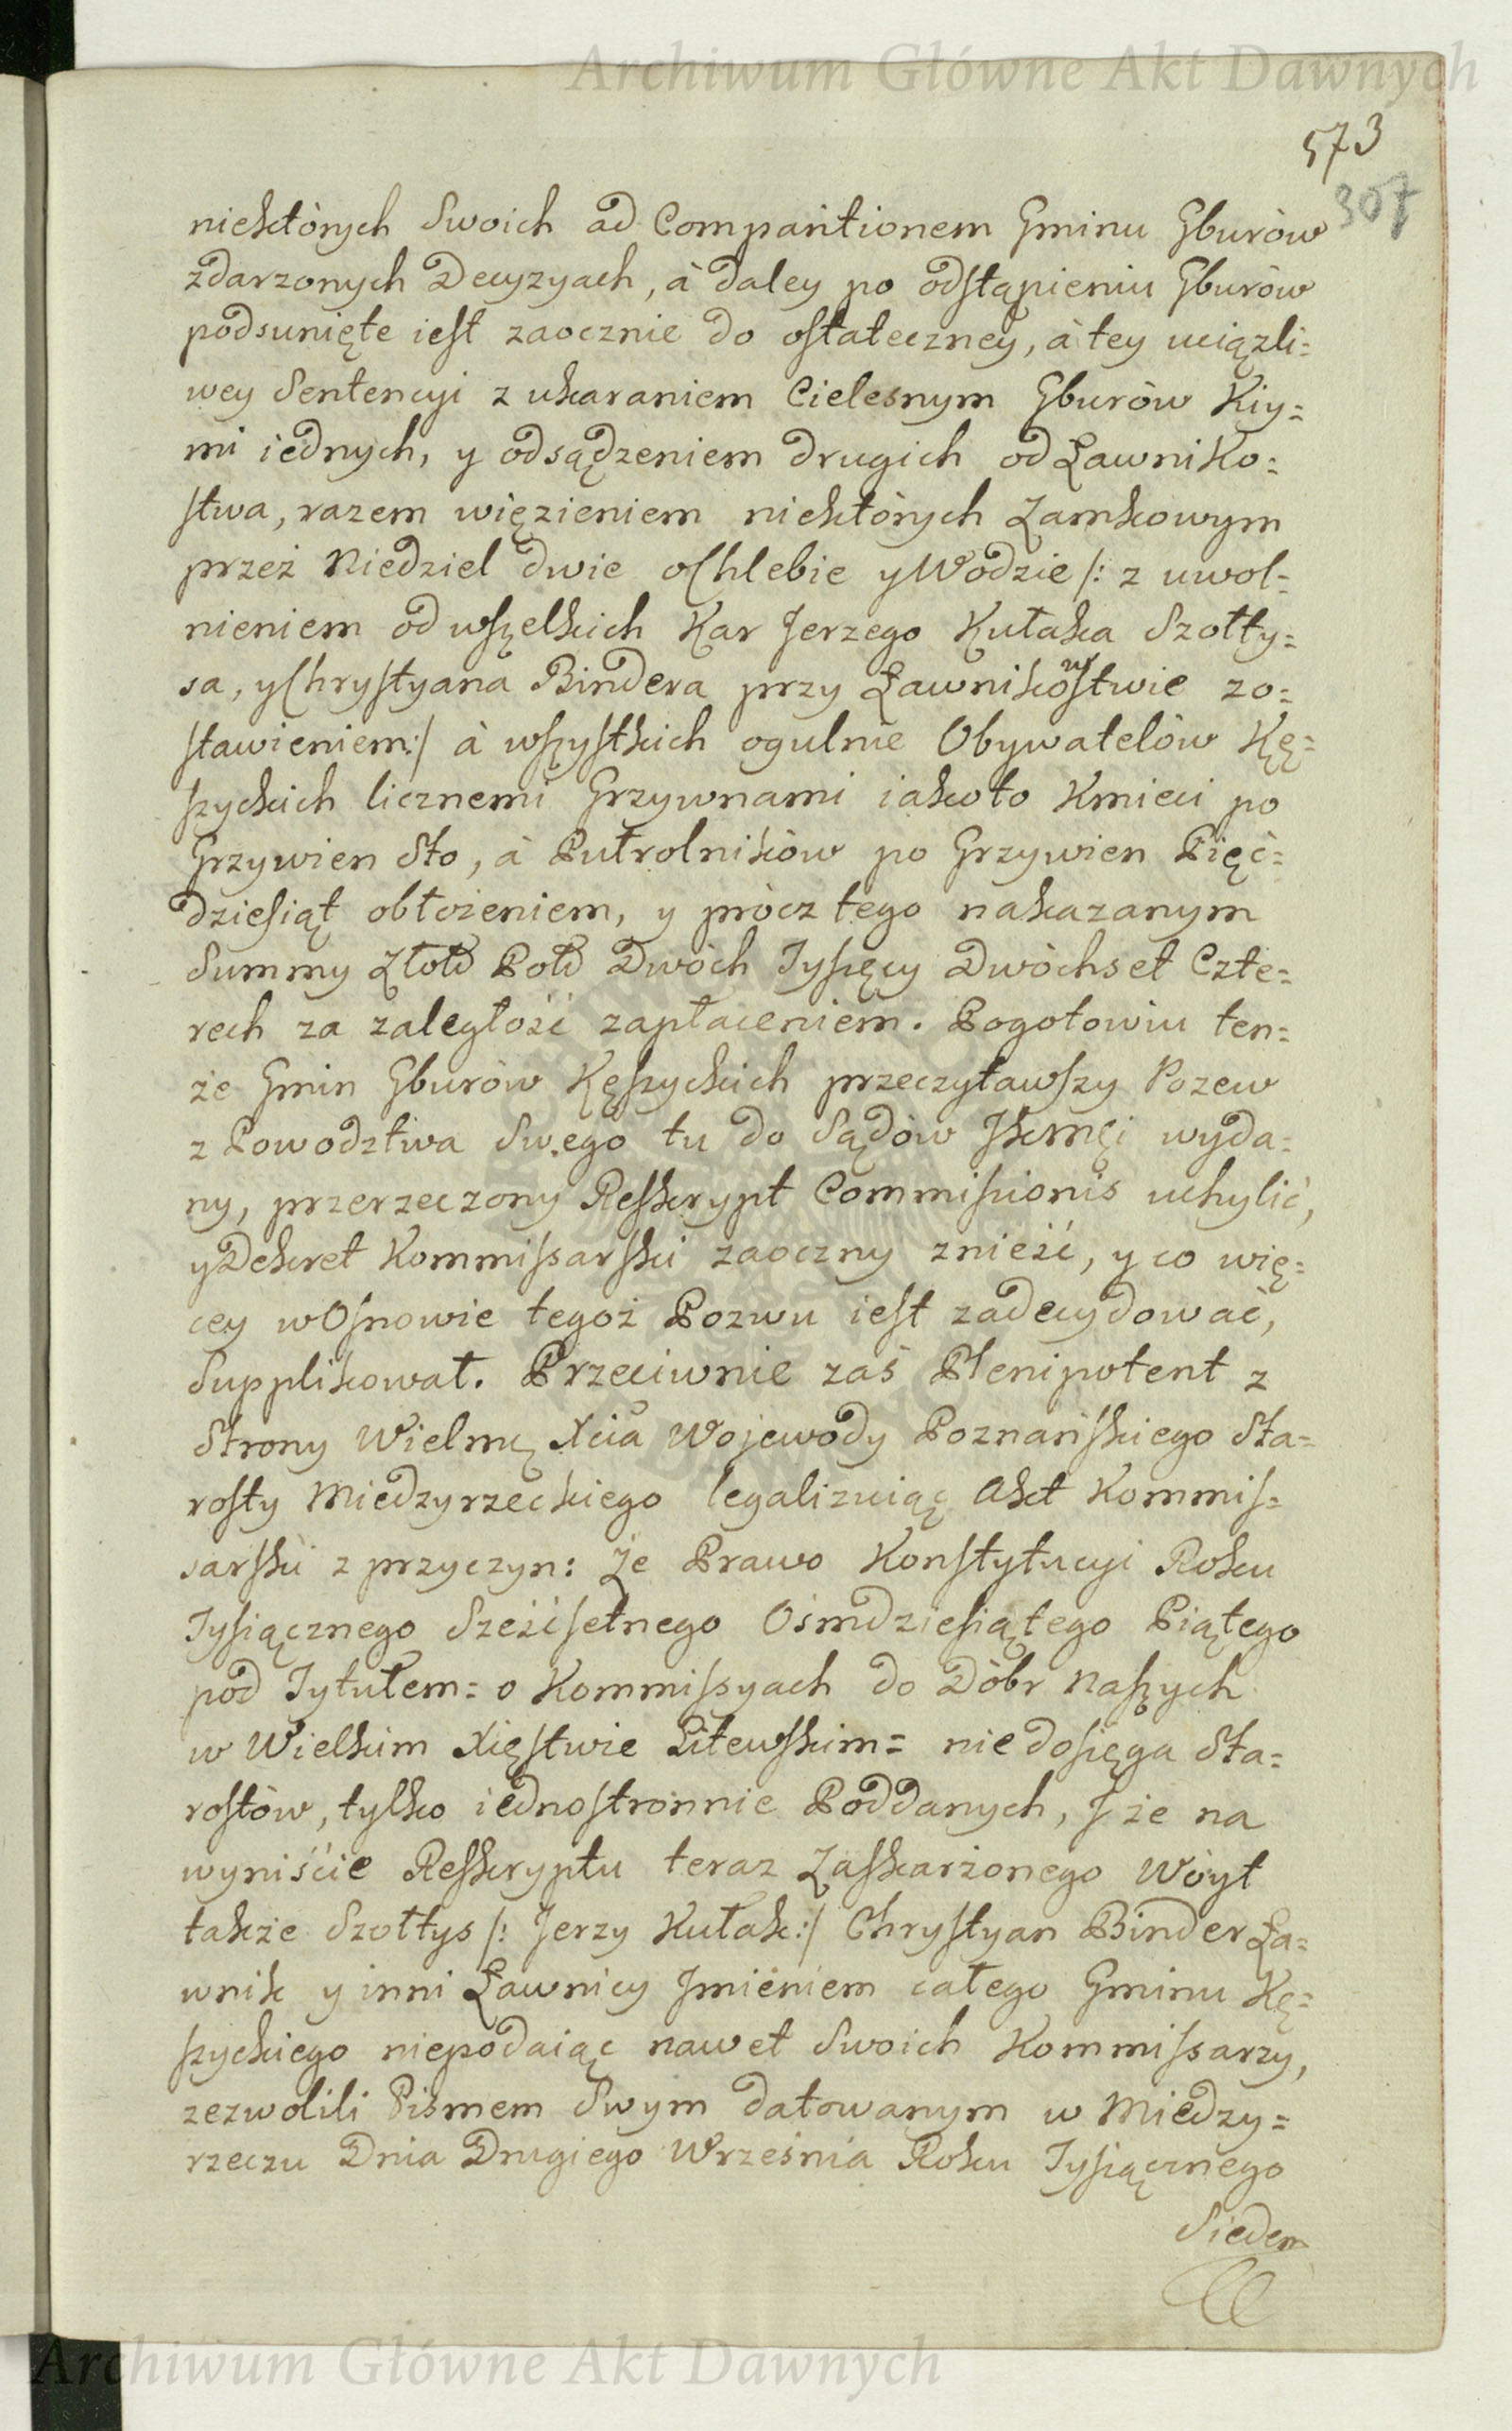 Archiwum Główne Akt Dawnych
573
307
niektórych Swoich ad Comparitionem Gminu Gburów
zdarzonych Decyzyach, à daley po odstąpieniu Gburów
podsunięte iest zaocznie do ostateczney, à tey uciązli=
wey Sentencyi z ukaraniem Cielesnym Gburów Kiy=
mi iednych, y odsądzeniem drugich od Ławniko=
stwa, razem więzieniem niektórych Zamkowym
przez Niedziel dwie o Chlebie y Wodzie /: z uwol=
nieniem od wszelkich Kar Jerzego Kułaka Szołty=
sa, y Chrystyana Bindera przy Ławnikowstwie zo=
stawieniem:/ à wszystkich ogulnie Obywatelów Kę=
szyckich licznemi Grzywnami iakoto Kmieci po
Grzywien Sto, à Pułrolników po Grzywien Pięć=
dziesiąt obłożeniem, y prócz tego nakazanym
Summy Złotd Pold Dwóch Tysięcy Dwóchset Czte=
rech za zaległość zapłaceniem. Pogotowiu ten=
że Gmin Gburów Kęszyckich przeczytawszy Pozew
z Powodztwa Swego tu do Sądów JKMci wyda=
ny, przerzeczony Reskrypt Commissionis uchylić,
y Dekret Kommissarski zaoczny znieść, y co wię=
cey w Osnowie tegoż Pozwu iest zadecydować,
Supplikował. Przeciwnie zaś Plenipotent z
Strony Wielmę Xcia Wojewody Poznańskiego Sta=
rosty Miedzyrzeckiego legalizuiąc Akt Kommis=
sarski z przyczyn: Że Prawo Konstytucyi Roku
Tysiącznego Sześćsetnego Ośmdziesiątego Piątego
pod Tytułem= o Kommissyach do Dóbr Naszych
w Wielkim Xięstwie Litewskim= nie dosięga Sta=
rostów, tylko iednostronnie Poddanych, J że na
wyniście Reskryptu teraz Zaskarżonego Woyt
także Szołtys /: Jerzy Kułak:/ Chrystyan Binder Ła=
wnik y inni Ławnicy Jmieniem całego Gminu Kę=
szyckiego niepodaiąc nawet Swoich Kommissarzy,
zezwolili Pismem Swym datowanym w Miedzy=
rzeczu Dnia Drugiego Września Roku Tysiącznego
Siedem
Archiwum Główne Akt Dawnych